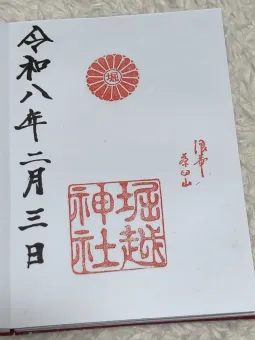 浪華
茶臼山
堀
堀越
神社
令和八年二月三日